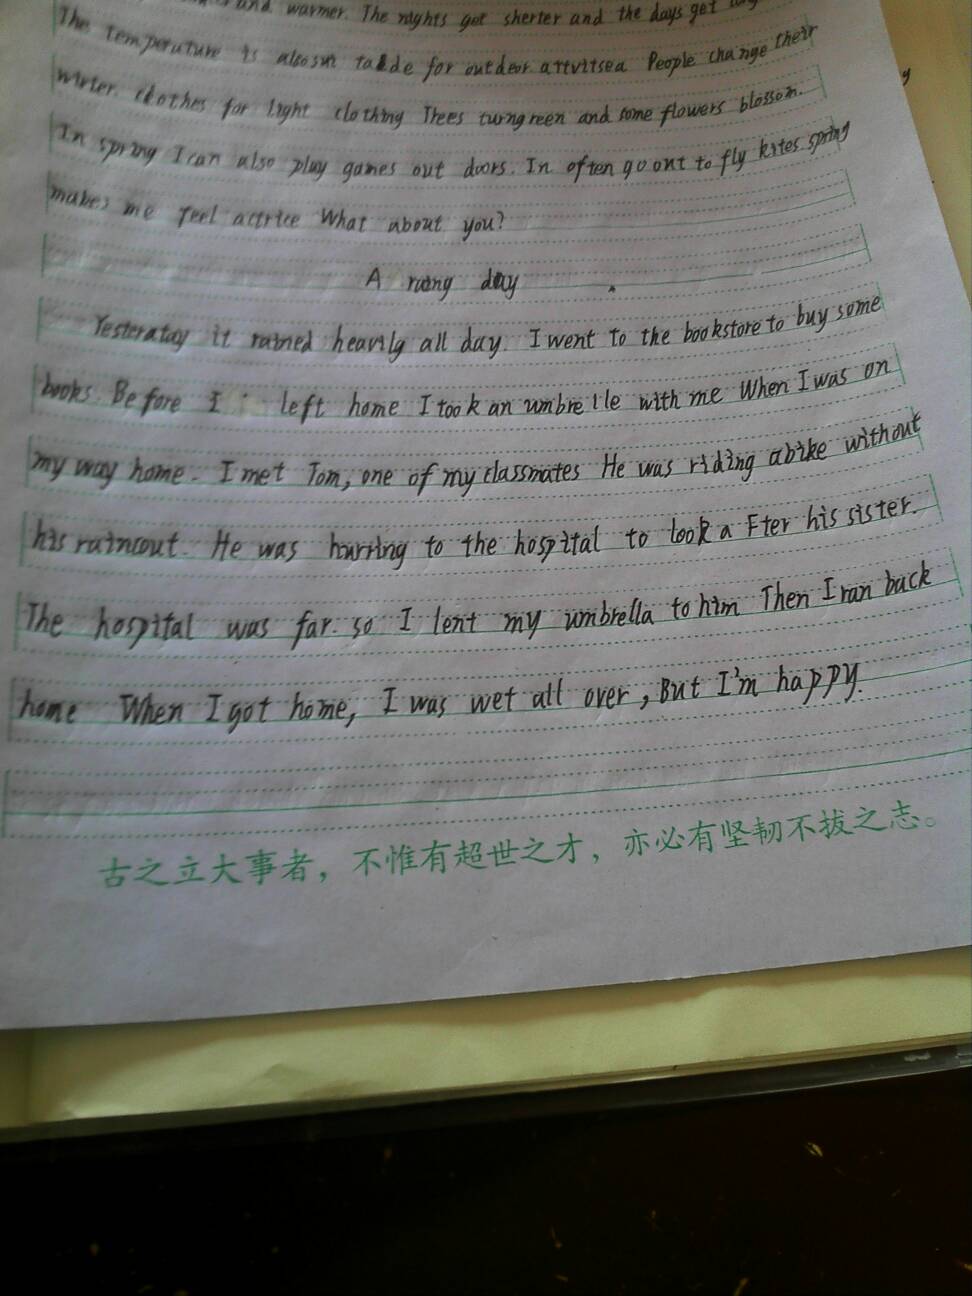 and warmer. The nights get sherter and the days get
The temperuture is alsosuit takde for outdeor attvitsea People change their
Winter. clothes for light clothing Trees turngreen and some flowers blossom.
In spring I can also play games out doors. In often go out to fly kites spring
makes me feel actrice What about you?
A rang day
Yesteratay it rained heavily all day. I went to the bookstore to buy some
books. Before I left home I took an umbre lle with me When I was on
my way home. I met Tom, one of my classmates He was riding abike without
his raincout. He was hurring to the hospital to look a Fter his sister.
The hospital was far. so I lent my umbrella to him Then I ran back
home When I got home, I was wet all over, But I'm happy.
古之立大事者，不惟有超世之才，亦必有坚韧不拔之志。